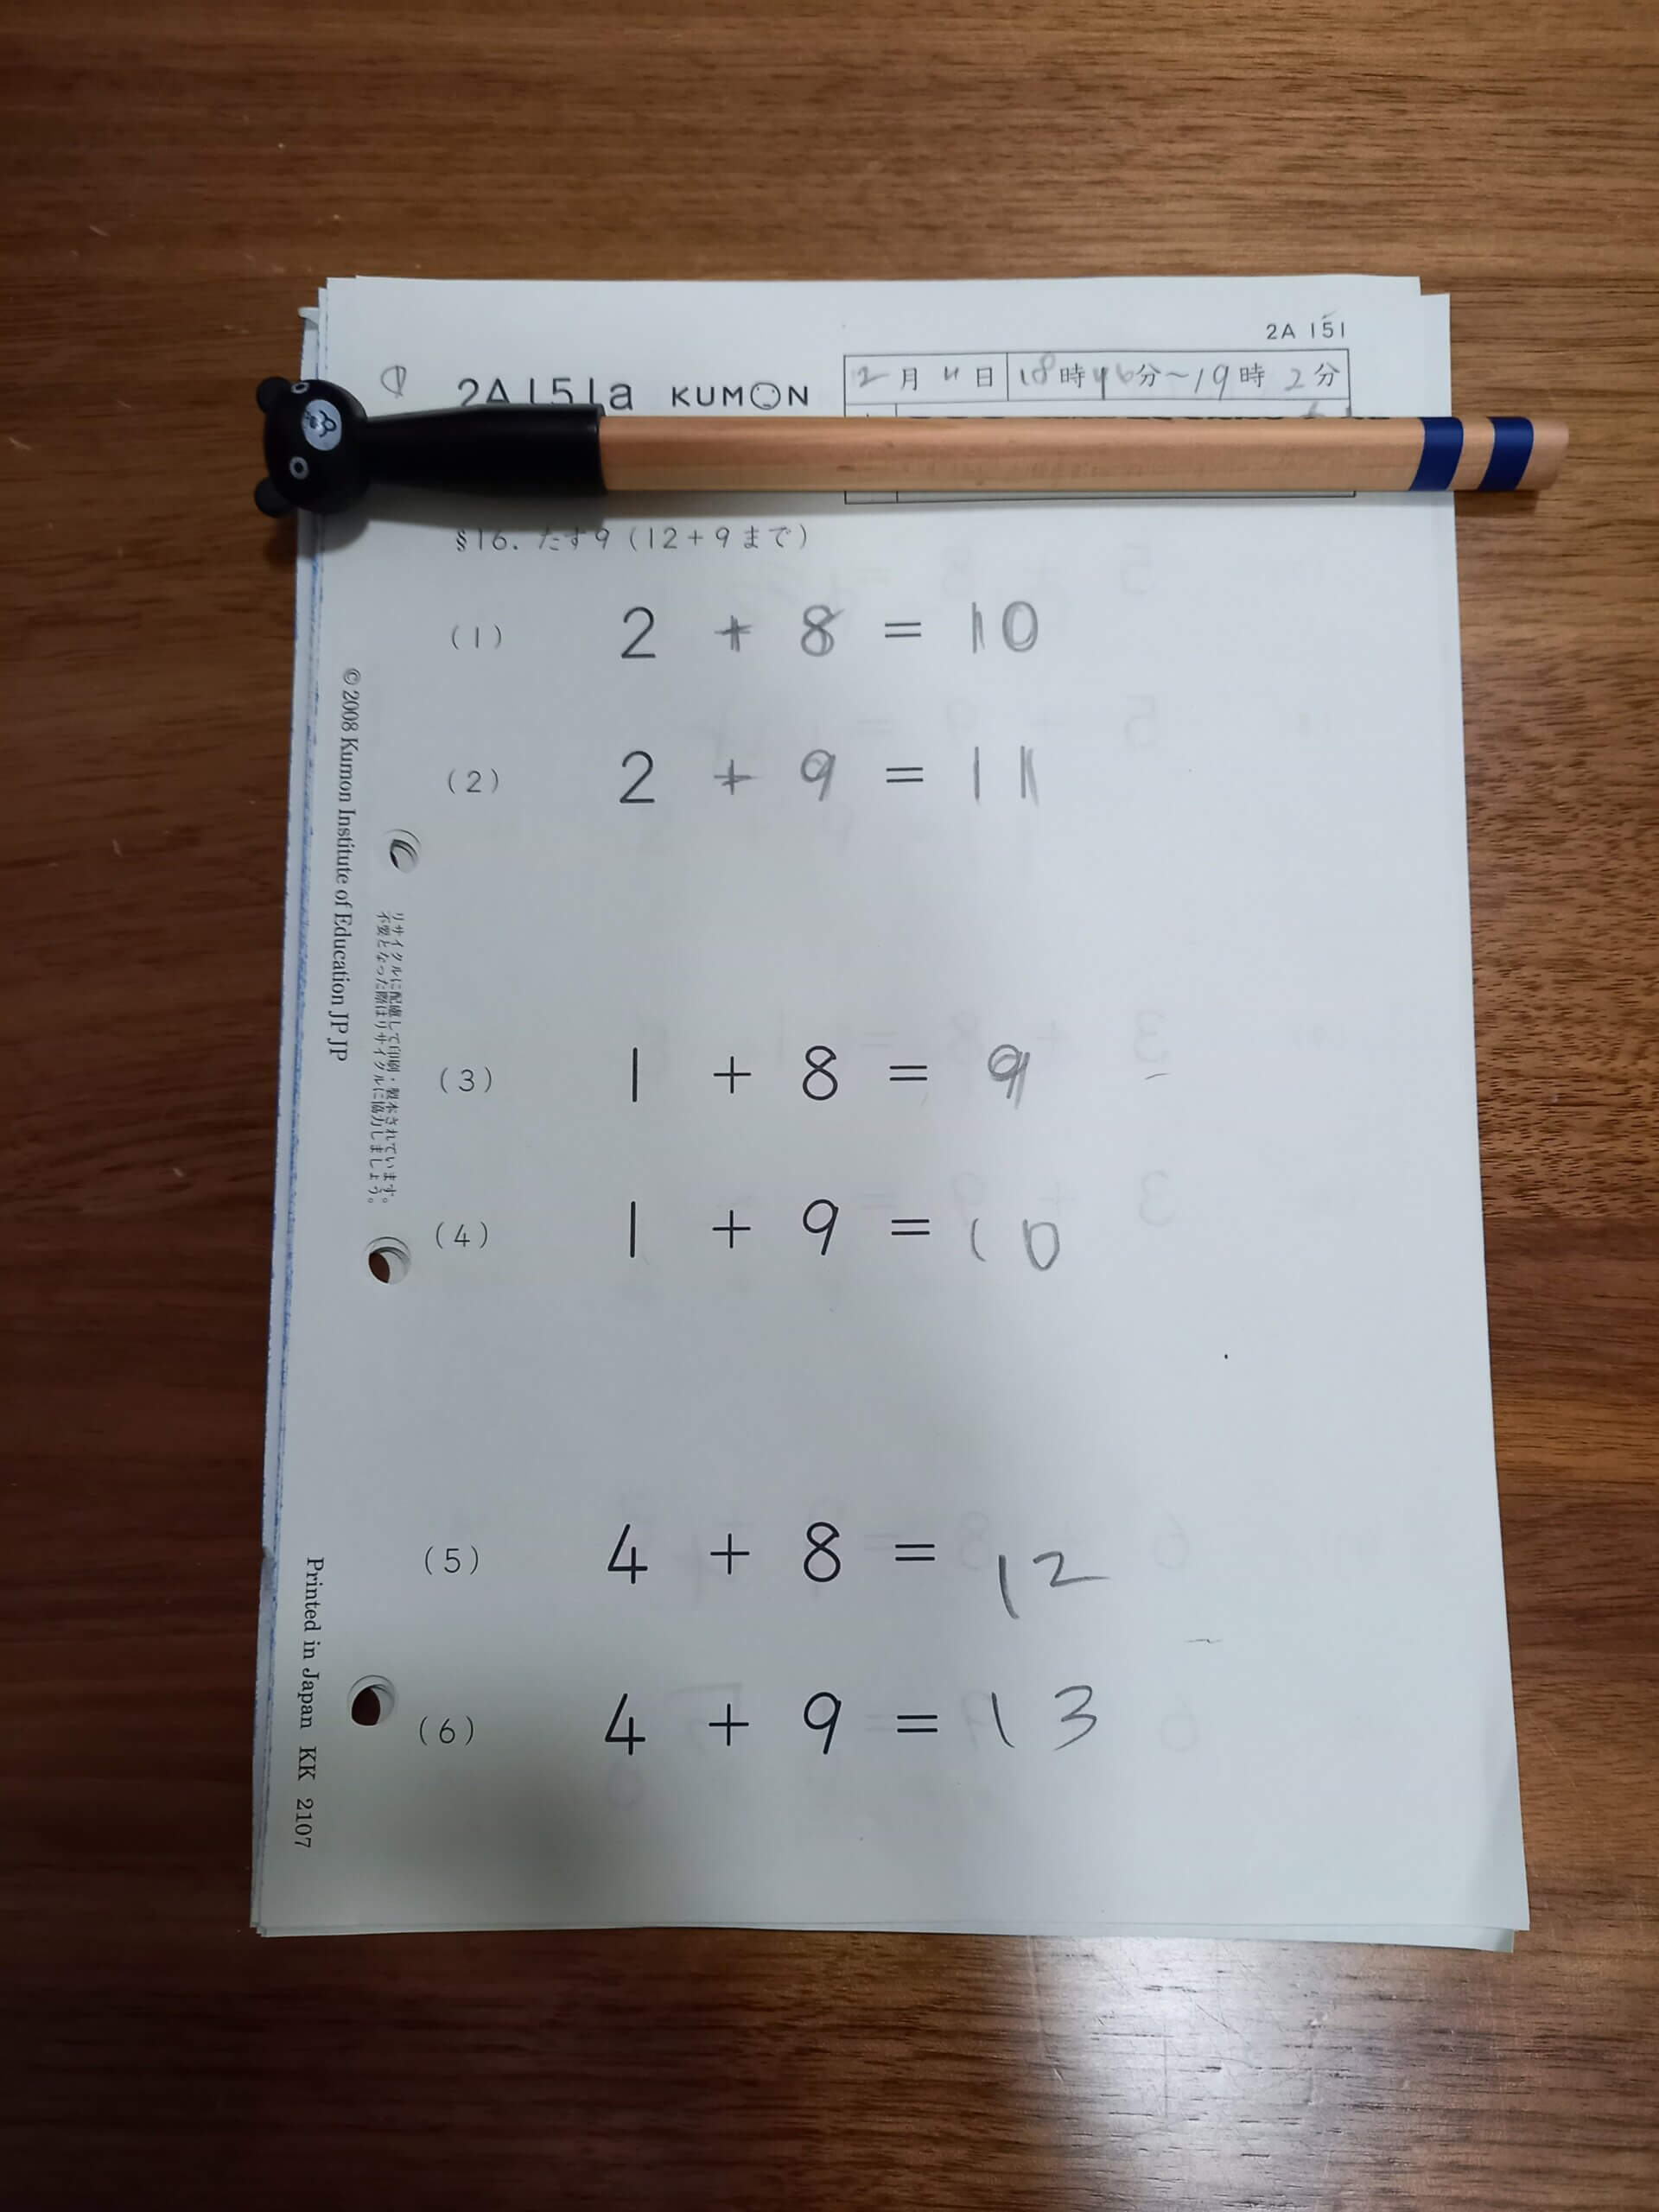 2A 151
2A151a KUMON
12月11日 18時46分~19時2分
§16. たす9 (12+9まで)
(1) 2 + 8 = 10
(2) 2 + 9 = 11
(3) 1 + 8 = 9
(4) 1 + 9 = 10
(5) 4 + 8 = 12
(6) 4 + 9 = 13
© 2008 Kumon Institute of Education JP JP
リサイクルに配慮して印刷・製本されています。
不要となった際はリサイクルに協力しましょう。
Printed in Japan KK 2107